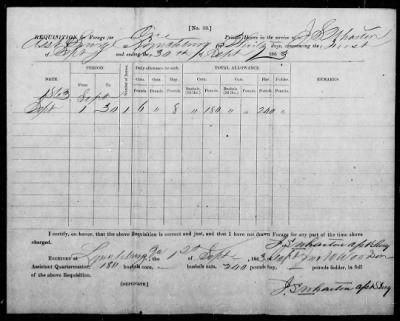 [No. 33.]
REQUISITION for Forage for One Private Horse in the service of J S Wharton
Asst Surgn Lynchburg Thirty days, commencing the first
of Sept and ending the 30th of Sept 1863
DATE. PERIOD. Number of Horses. Daily allowance for each. TOTAL ALLOWANCE. REMARKS.
From To Corn. Oats. Hay. Corn. Corn. Oats. Oats. Hay. Fodder.
Pounds. Pounds. Pounds. Bushels. Pounds. Bushels. Pounds. Pounds. Pounds.
1863 Sept
Sept 1 30 1 6 " 8 " 180 " " 240 "
I certify, on honor, that the above Requisition is correct and just, and that I have not drawn Forage for any part of the time above
charged.
J S Wharton
RECEIVED at Lynchburg Va 1st of Sept 1863 of
Assistant Quartermaster, 180 bushels corn, " bushels oats, 240 pounds hay, pounds fodder, in full
of the above Requisition.
[DUPLICATE.]
J S Wharton